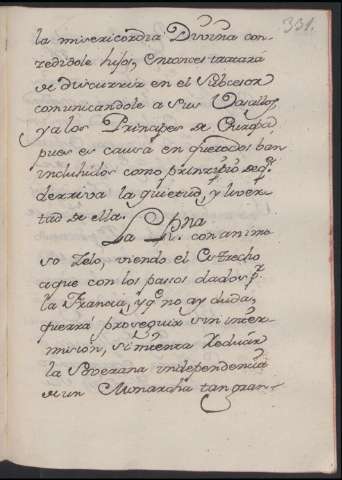 331.
la misericordia Divina con-
zedidole hijos, entonces tratará
de discurrir en el Subcesor
comunicandole a sus Vasallos,
y a los Principes de Europa,
pues es causa en que todos ban
incluhidos como principio de q.ᵉ
derriva la quietud, y liver-
tad de ella.
La Rna. con animo-
so Zelo, viendo el Estrecho
a que con los passos dados p.ʳ
la Francia, y q.ᵉ no ay duda,
querrá proseguir sin inter-
mision, si mienta
la Soverana independencia
de un Monarchia tan gran-